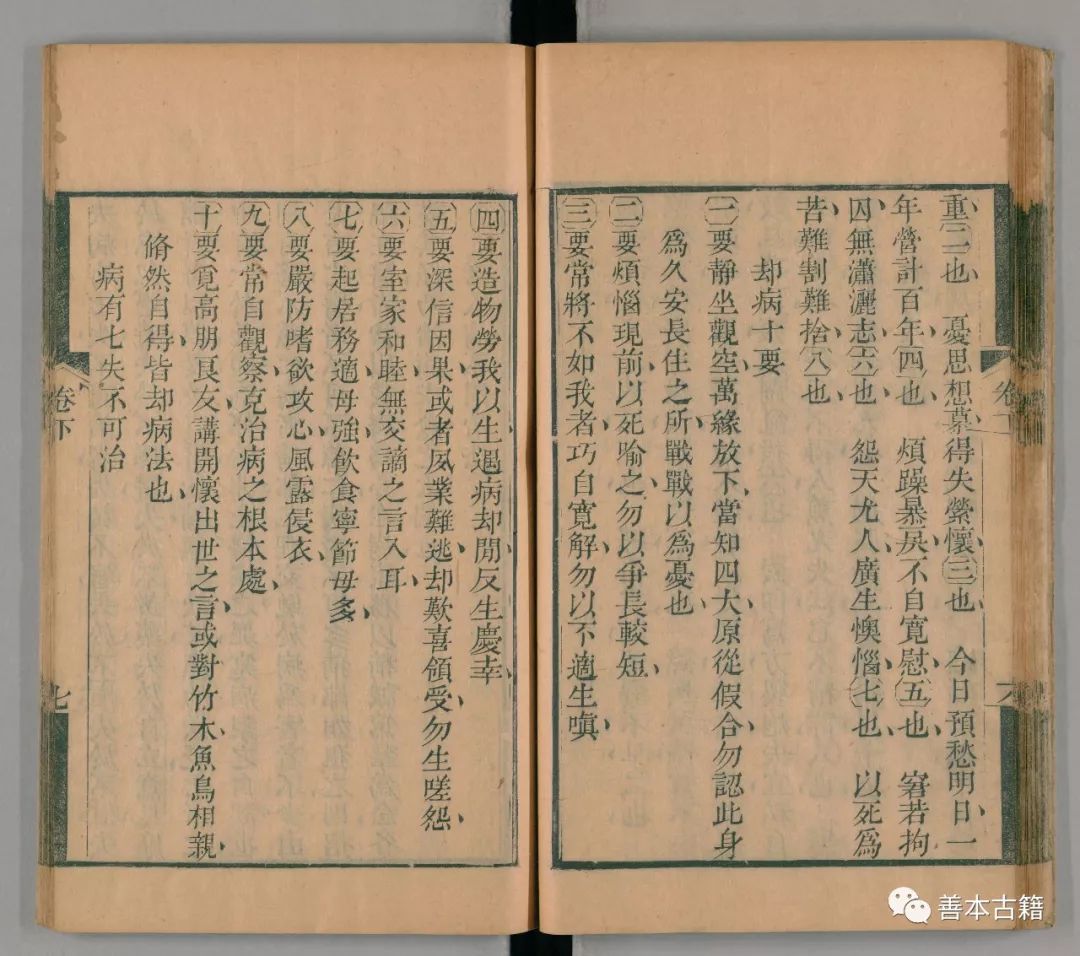 重㊁也　憂思想慕得失縈懷㊂也　今日預愁明日一
年營計百年㊃也　煩躁暴戾不自寬慰㊄也　窘若拘
囚無瀟灑志㊅也　怨天尤人廣生懊惱㊆也　以死爲
苦難割難捨㊇也
却病十要
㊀要靜坐觀空萬緣放下當知四大原從假合勿認此身
爲久安長住之所戰戰以爲憂也
㊁要煩惱現前以死喻之勿以爭長較短
㊂要常將不如我者巧自寬解勿以不適生嗔
卷下
六
㊃要造物勞我以生遇病却閒反生慶幸
㊄要深信因果或者夙業難逃却歡喜領受勿生嗟怨
㊅要室家和睦無交謫之言入耳
㊆要起居務適毋強飲食寧節毋多
㊇要嚴防嗜欲攻心風露侵衣
㊈要常自觀察克治病之根本處
㊉要覓高朋良友講開懷出世之言或對竹木魚鳥相親
翛然自得皆却病法也
病有七失不可治
卷下
七
善本古籍